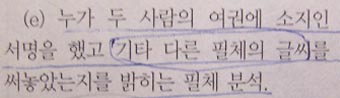 (e) 누가 두 사람의 여권에 소지인
서명을 했고 기타 다른 필체의 글씨를
써놓았는지를 밝히는 필체 분석.